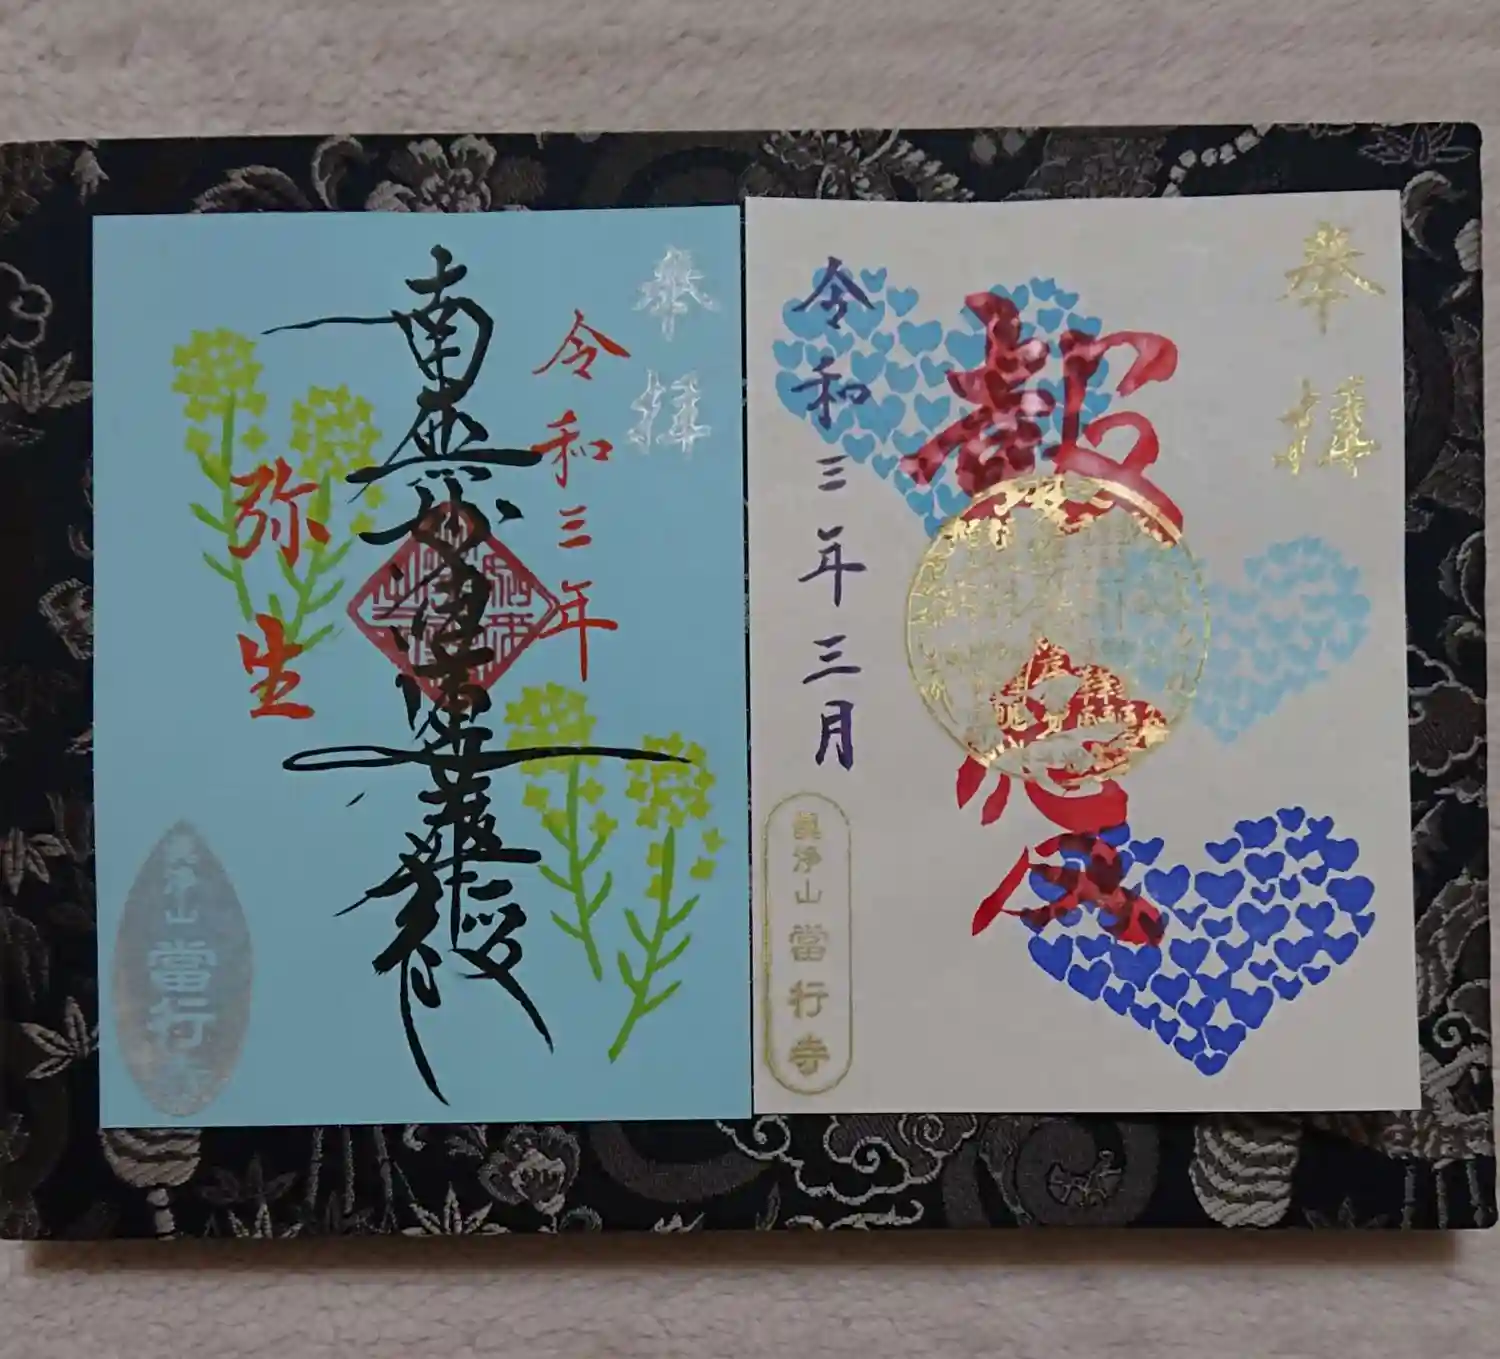 奉拝
令和三年
南無妙法蓮華経
弥生
當行寺
奉拝
報恩
令和三年三月
眞浄山當行寺